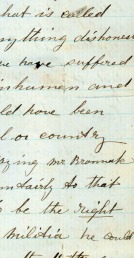 that is called
anything dishones
we have suffered
inhuman and
ld have been
l or country
zing Mr
unfairly to that
o be the right
militia he could